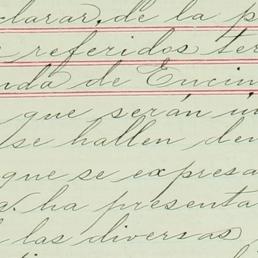 clarar, de la p
referidos ter
nda de Encin
que serán ú
se hallen den
que se expresa
ha presenta
las diversas